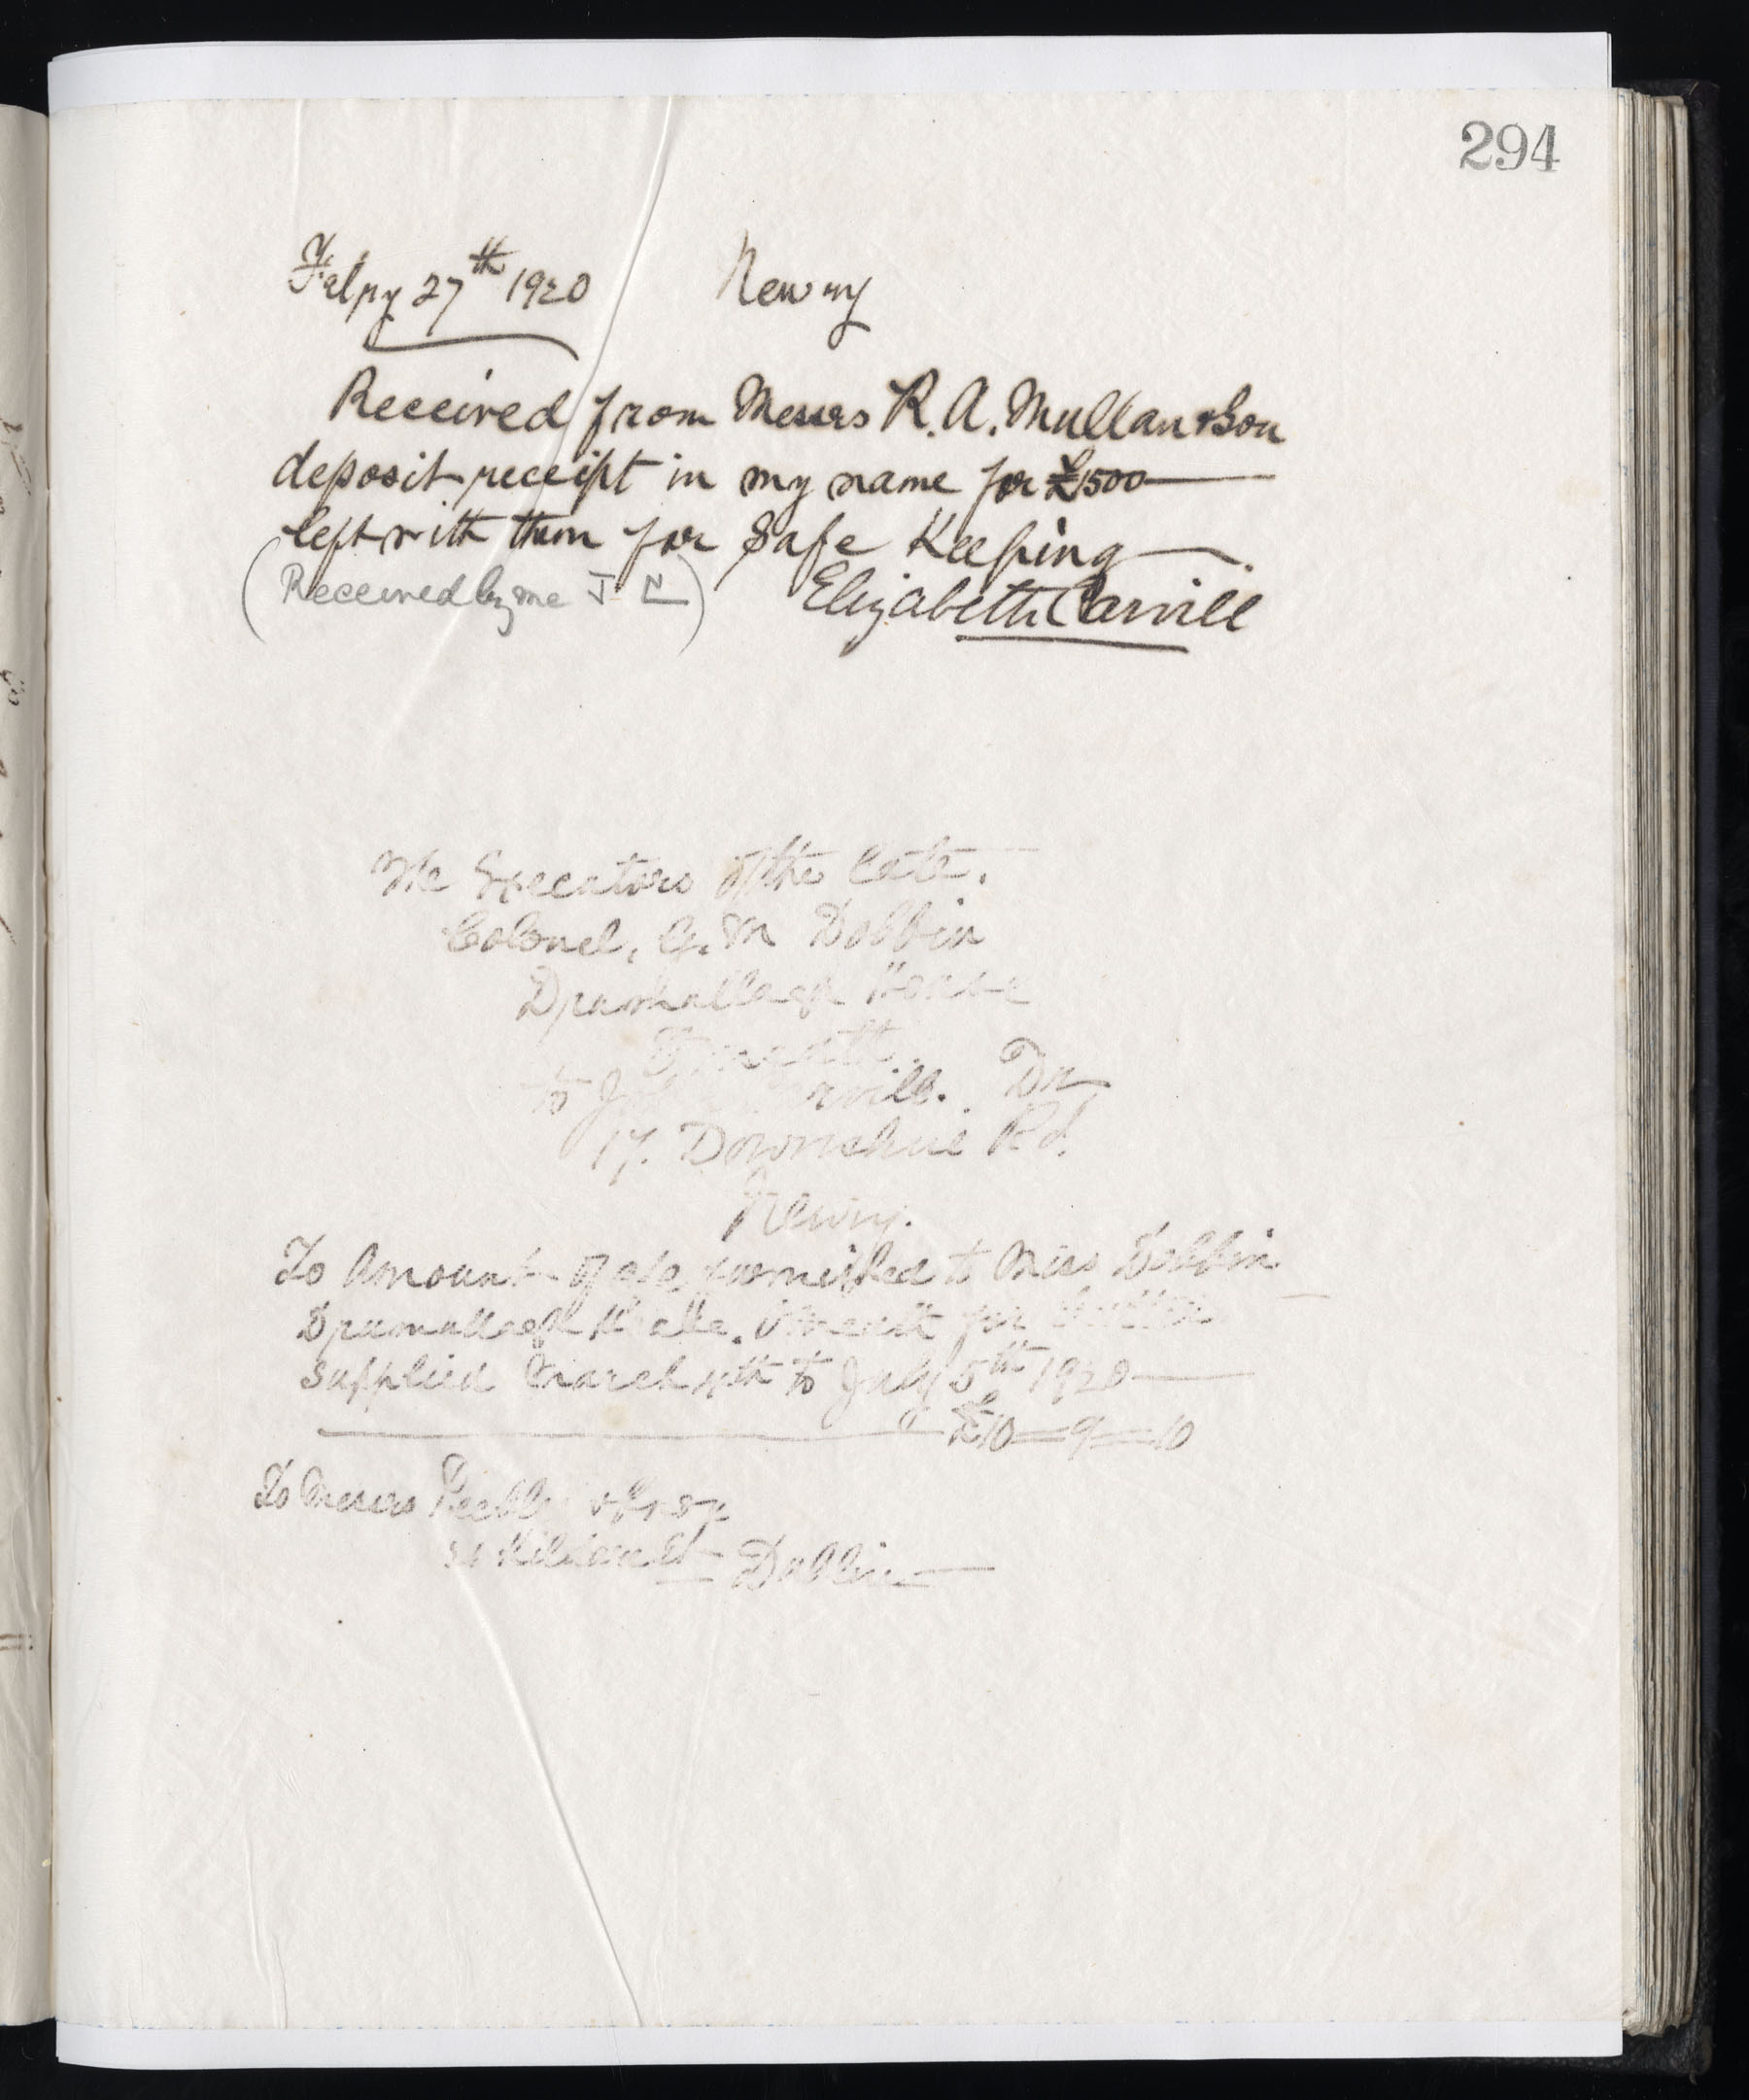 294
Febry 27th 1920 Newry
Received from Messrs R. A. Mullan & Son
deposit receipt in my name for £1500
left with them for Safe Keeping
(Received by me J C) Elizabeth Carvill
The Executors of the late.
Colonel, G. M Dobbin
Drumullagh House
Omeath.
to Carvill. Dr
17. Downshire Rd.
Newry.
To Amount of a/c furnished to Miss Dobbin
Drumullagh House. Omeath for
supplied March to July 5th 1920
£10=9=10
To Messrs
Kildare St Dublin